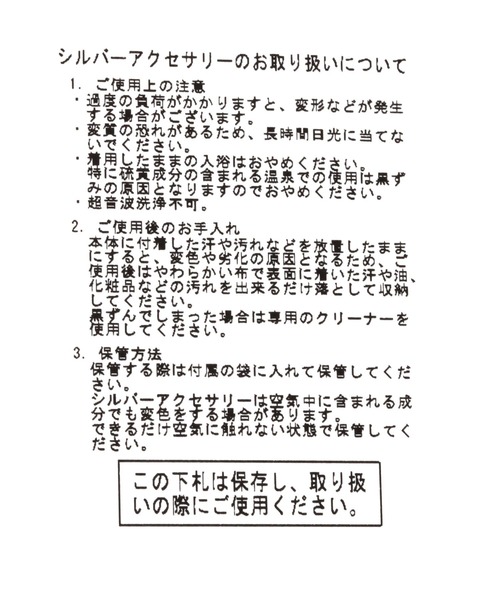 シルバーアクセサリーのお取り扱いについて
1. ご使用上の注意
・過度の負荷がかかりますと、変形などが発生
する場合がございます。
・変質の恐れがあるため、長時間日光に当てな
いでください。
・着用したままの入浴はおやめください。
特に硫黄成分の含まれる温泉での使用は黒ず
みの原因となりますのでおやめください。
・超音波洗浄不可。
2. ご使用後のお手入れ
本体に付着した汗や汚れなどを放置したまま
にすると、変色や劣化の原因となるため、ご
使用後はやわらかい布で表面に着いた汗や油、
化粧品などの汚れを出来るだけ落として収納
してください。
黒ずんでしまった場合は専用のクリーナーを
使用してください。
3. 保管方法
保管する際は付属の袋に入れて保管してくだ
さい。
シルバーアクセサリーは空気中に含まれる成
分でも変色をする場合があります。
できるだけ空気に触れない状態で保管してく
ださい。
この下札は保存し、取り扱
いの際にご使用ください。